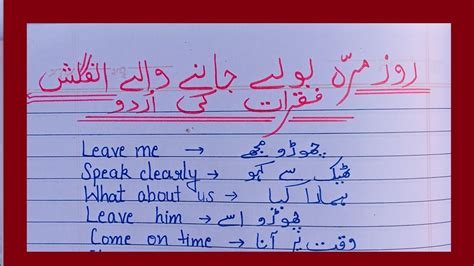 روزمرہ بولے جانے والے انگلش
فقرات کی اُردو
Leave me → چھوڑو مجھے
Speak clearly → ٹھیک سے کہو
What about us → ہمارا کیا
Leave him → چھوڑو اسے
Come on time → وقت پر آنا